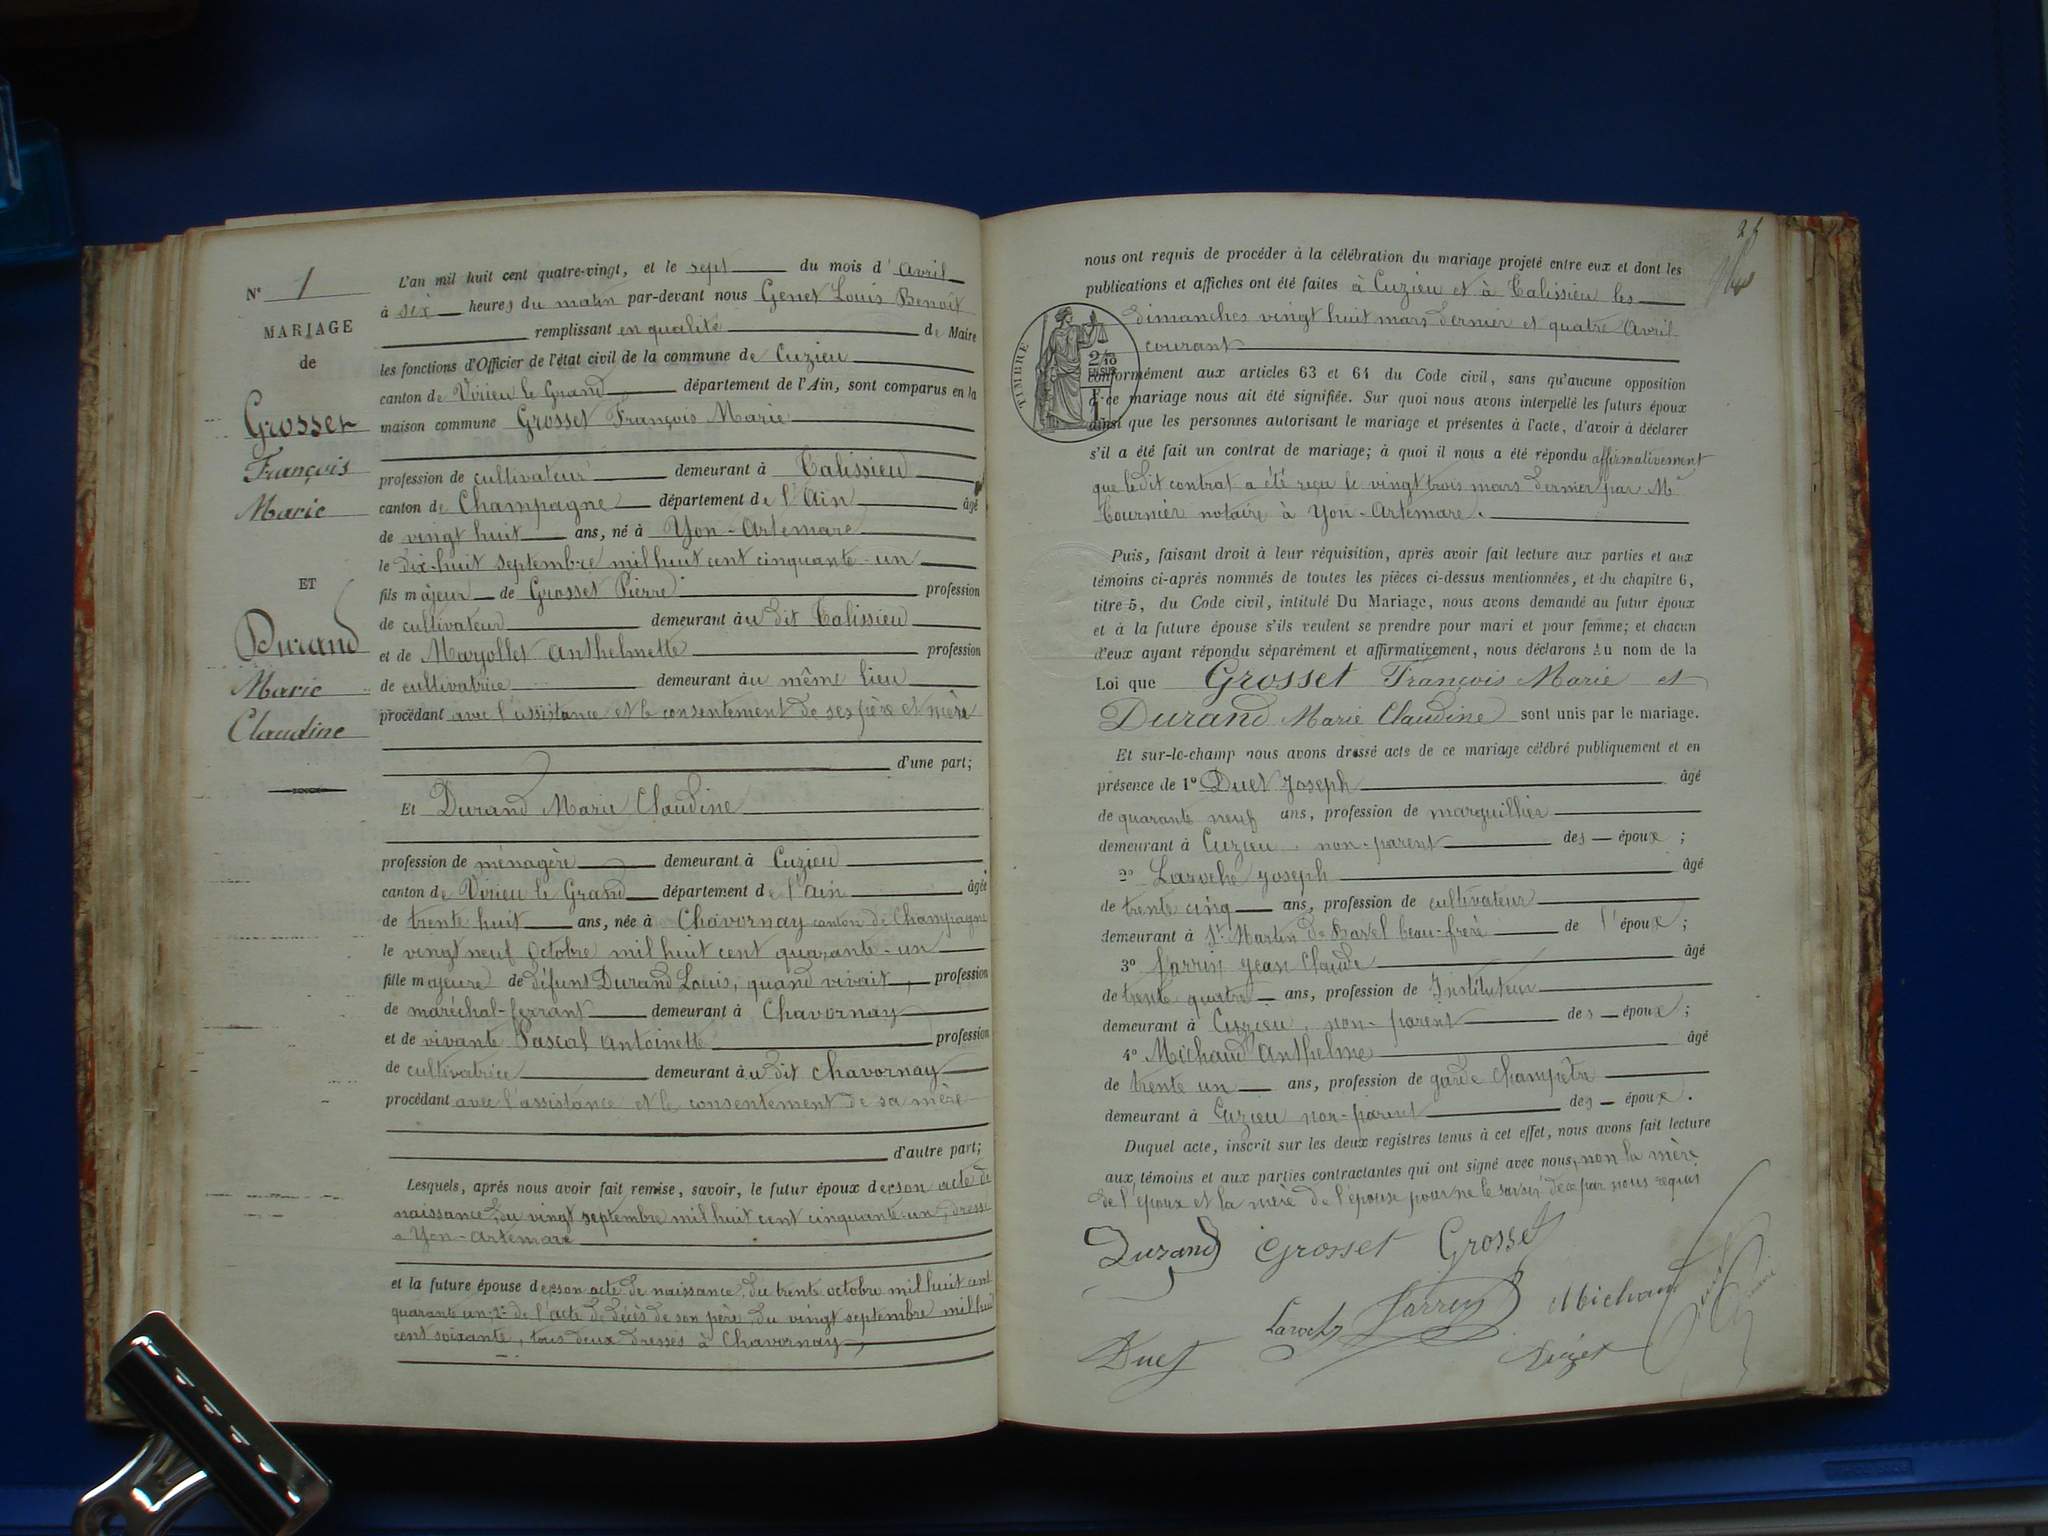 N° 1
MARIAGE
de
Grosset
François
Marie
ET
Durand
Marie
Claudine
L'an mil huit cent quatre-vingt, et le sept du mois d'avril
à six heures du matin par-devant nous Genet Louis Benoit
remplissant en qualité de Maire
les fonctions d'Officier de l'état civil de la commune de Cuzieu
canton de Virieu le Grand département de l'Ain, sont comparus en la
maison commune Grosset François Marie
profession de cultivateur demeurant à Talissieu
canton de Champagne département de l'Ain âgé
de vingt huit ans, né à Yon-Artemare
le dix-huit septembre mil huit cent cinquante-un
fils majeur de Grosset Pierre profession
de cultivateur demeurant au dit Talissieu
et de Maryollet Anthelmette profession
de cultivatrice demeurant au même lieu
procédant avec l'assistance et le consentement de ses père et mère
d'une part;
Et Durand Marie Claudine
profession de ménagère demeurant à Cuzieu
canton de Virieu le Grand département de l'Ain âgée
de trente huit ans, née à Chavornay canton de Champagne
le vingt neuf Octobre mil huit cent quarante-un
fille majeure de défunt Durand Louis, quand vivait, profession
de maréchal-ferrant demeurant à Chavornay
et de vivante Pascal Antoinette profession
de cultivatrice demeurant au dit Chavornay
procédant avec l'assistance et le consentement de sa mère
d'autre part;
Lesquels, après nous avoir fait remise, savoir, le futur époux de son acte de
naissance, du vingt septembre mil huit cent cinquante-un, dressé
à Yon-Artemare
et la future épouse de son acte de naissance, du trente octobre mil huit cent
quarante un, 2° de l'acte de décès de son père, du vingt septembre mil huit
cent soixante, tous deux dressés à Chavornay,
nous ont requis de procéder à la célébration du mariage projeté entre eux et dont les
publications et affiches ont été faites à Cuzieu et à Talissieu les
dimanches vingt huit mars dernier et quatre Avril
courant
TIMBRE
2/10
EN SUS
conformément aux articles 63 et 64 du Code civil, sans qu'aucune opposition
à ce mariage nous ait été signifiée. Sur quoi nous avons interpellé les futurs époux
ainsi que les personnes autorisant le mariage et présentes à l'acte, d'avoir à déclarer
s'il a été fait un contrat de mariage; à quoi il nous a été répondu affirmativement
que ledit contrat a été reçu le vingt trois mars dernier par Me
Tournier notaire à Yon-Artemare.
Puis, faisant droit à leur réquisition, après avoir fait lecture aux parties et aux
témoins ci-après nommés de toutes les pièces ci-dessus mentionnées, et du chapitre 6,
titre 5, du Code civil, intitulé Du Mariage, nous avons demandé au futur époux
et à la future épouse s'ils veulent se prendre pour mari et pour femme; et chacun
d'eux ayant répondu séparément et affirmativement, nous déclarons au nom de la
Loi que Grosset François Marie et
Durand Marie Claudine sont unis par le mariage.
Et sur-le-champ nous avons dressé acte de ce mariage célébré publiquement et en
présence de 1° Duet Joseph âgé
de quarante neuf ans, profession de marguillier
demeurant à Cuzieu, non-parent des époux;
2° Laroche Joseph âgé
de trente cinq ans, profession de cultivateur
demeurant à St Martin de Bavel beau-frère de l'époux;
3° Sarrin Jean Claude âgé
de trente quatre ans, profession de Instituteur
demeurant à Cuzieu, non-parent des époux;
4° Michaud Anthelme âgé
de trente un ans, profession de garde champêtre
demeurant à Cuzieu non-parent des époux.
Duquel acte, inscrit sur les deux registres tenus à cet effet, nous avons fait lecture
aux témoins et aux parties contractantes qui ont signé avec nous, non la mère
de l'époux et la mère de l'épouse pour ne le savoir de ce par nous requis
Durand Grosset Grosset
Laroche Sarrin Michaud
Duet